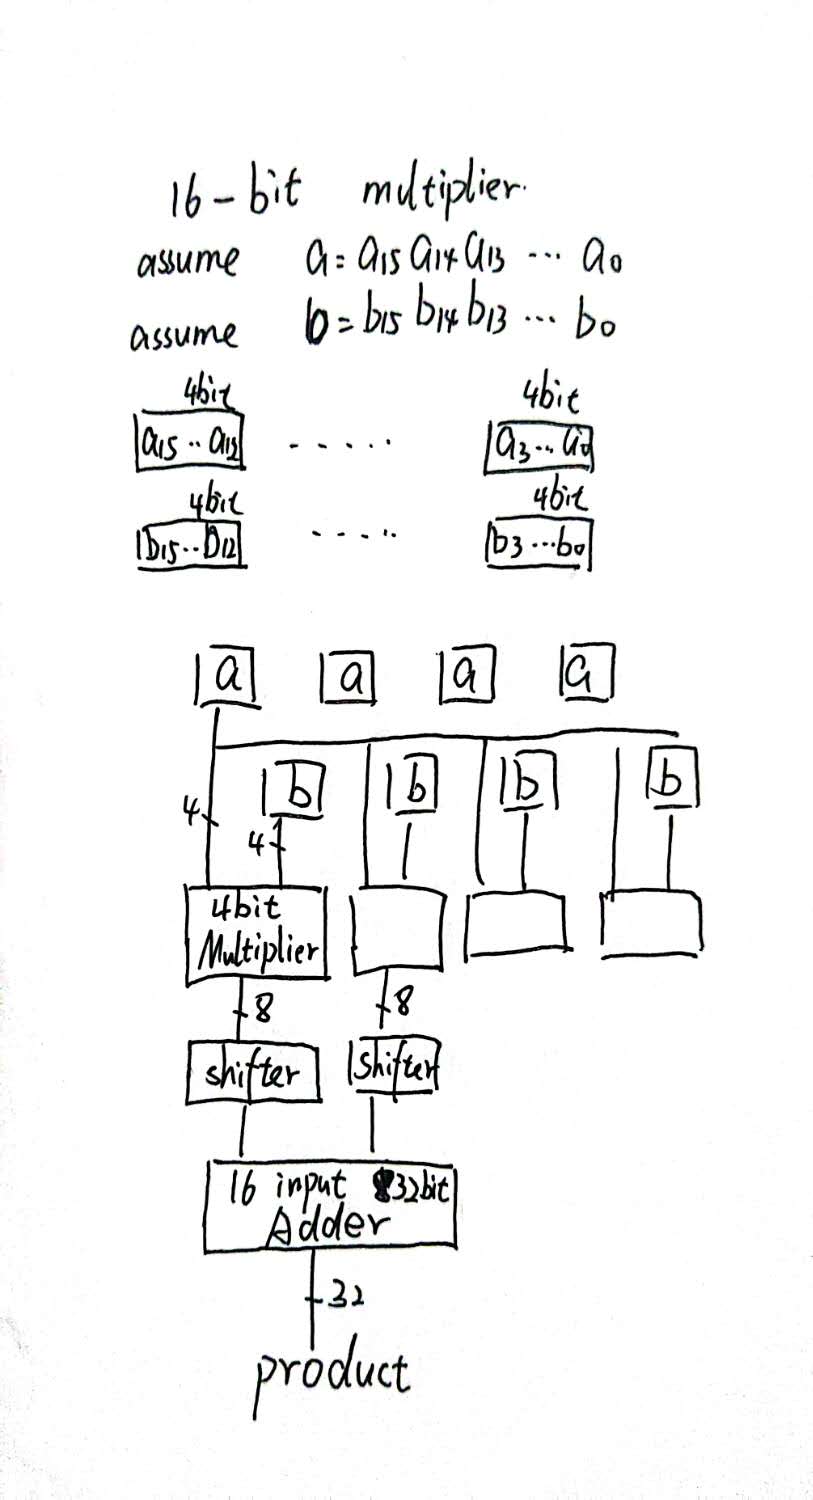 16-bit multiplier.
assume a = a15 a14 a13 ... a0
assume b = b15 b14 b13 ... b0
4bit 4bit
a15 .. a12 ..... a3 ... a0
4bit 4bit
b15 .. b12 ..... b3 ... b0
a a a a
b b b b
4
4
4bit
Multiplier
8 8
shifter shifter
16 input 32bit
Adder
32
product